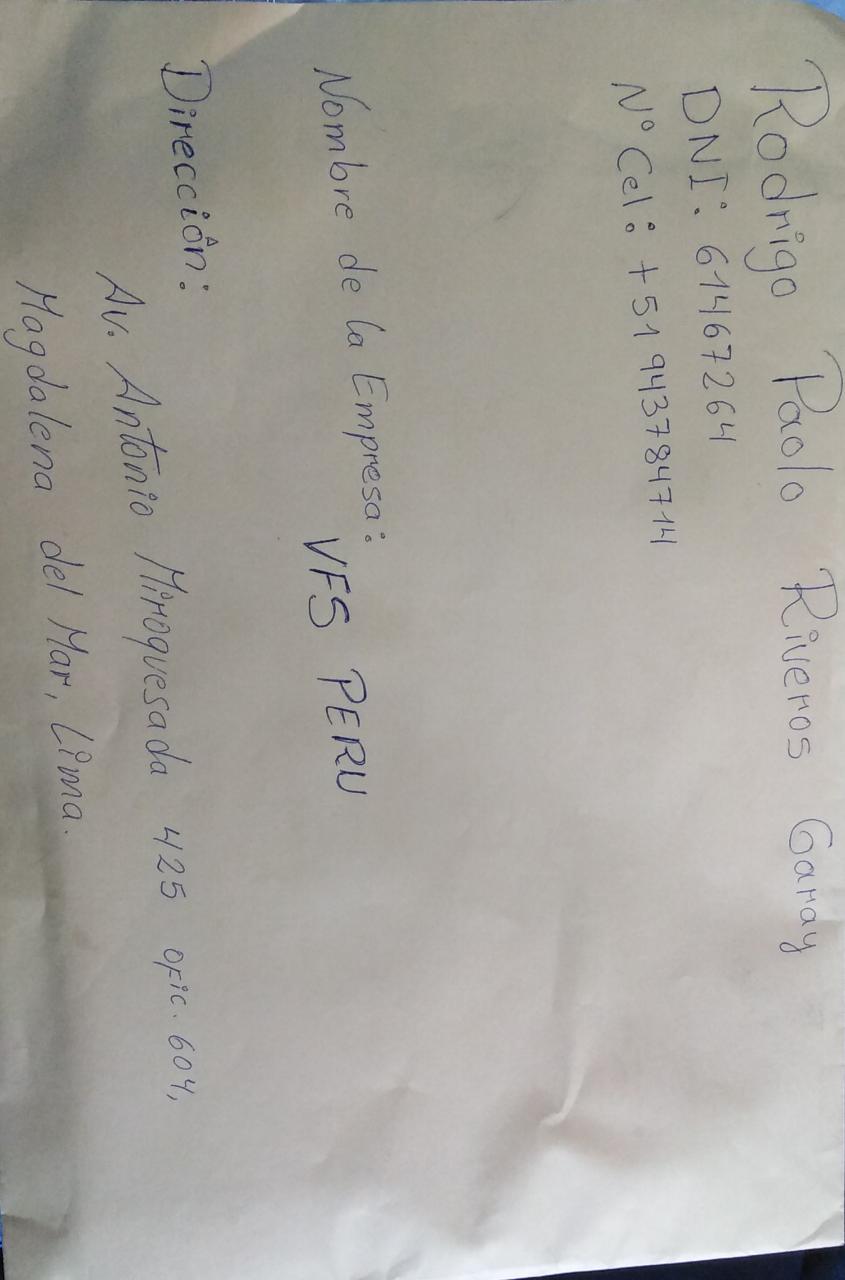 Rodrigo Paolo Riveros Garay
DNI: 61467264
N° Cel: +51 943784714
Nombre de la Empresa:
VFS PERU
Dirección:
Av. Antonio Miroquesada 425 ofic. 604,
Magdalena del Mar, Lima.